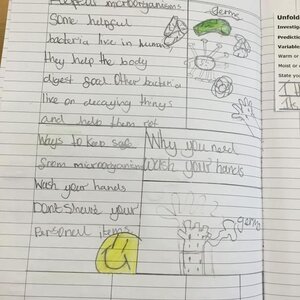 Helpful microorganisms
Some helpful
bacteria live in human
they help the body
digest goal Other bacteria
live on decaying things
and help them rot
Ways to keep safe
from microorganism
Wash your hands
Dont share your
Personal items
germs
Why you need
wash your hands
germs
Unfold
Investiga
Prediction
Variable
Warm or
Moist or
State you